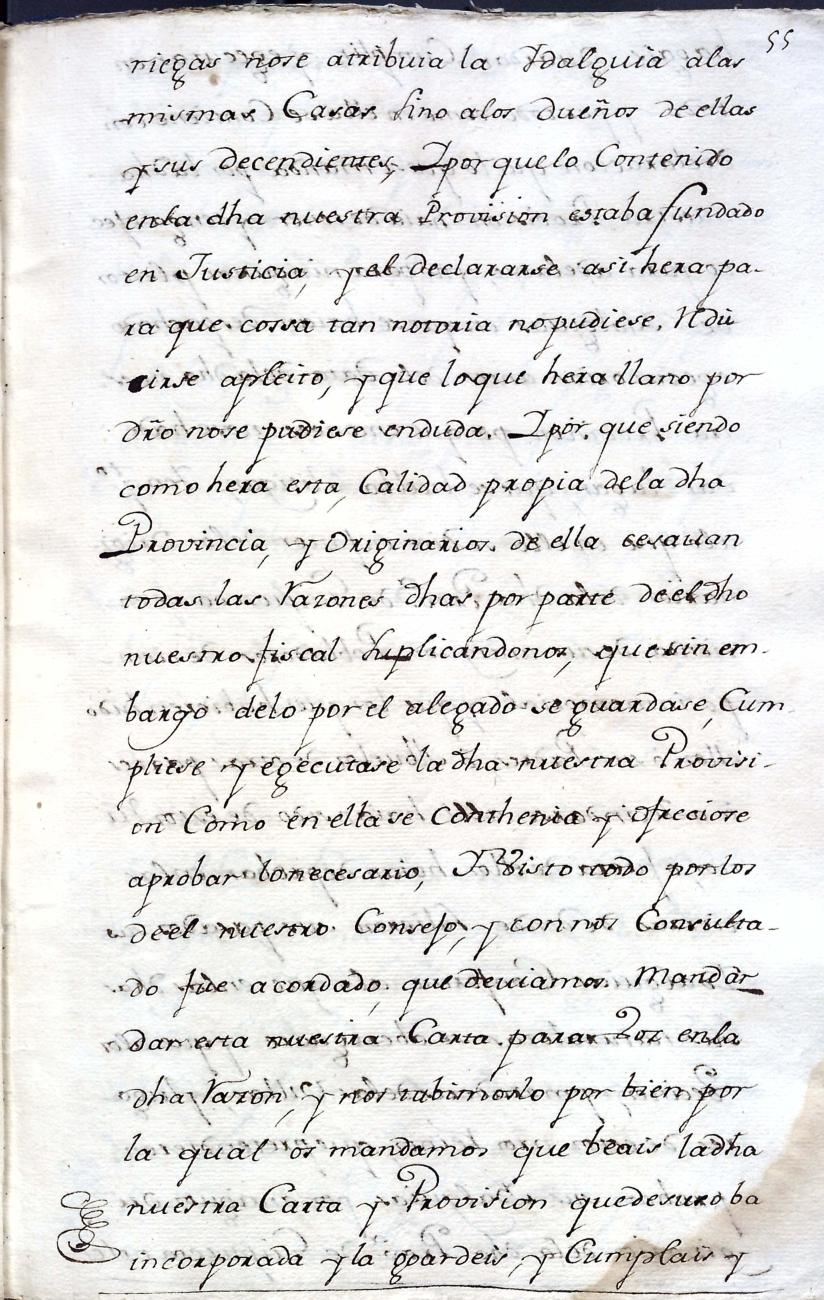 55
riegas nose atribuia la Ydalguia alas
mismas Casas sino alos dueños de ellas
y sus decendientes, Y por quelo Contenido
enla dha nuestra Provision estaba fundado
en Justicia, y el declararse asi hera pa-
ra que cossa tan notoria nopudiese, Rdu
cirse apleito, y que loque hera llano por
dr̃o nose pudiese enduda. Y por que siendo
como hera esta, Calidad propia dela dha
Provincia, y Originarios de ella cesauan
todas las Razones dhas por parte de el dho
nuestro fiscal Suplicandonos, que sin em-
bargo delo por el alegado se guardase, Cum
pliese y egecutase la dha nuestra Provisi-
on Como en ella se Conthenia y ofreciose
aprobar lonecesario, Y Visto todo por los
de el nuestro Consejo, y con nos Consulta-
do fue acordado, que deuiamos Mandar
dar esta nuestra Carta para Vos enla
dha Razon, y nos tubimoslo por bien por
la qual os mandamos que beais la dha
nuestra Carta y Provision quedesuso ba
incorporada y la goardeis, y Cumplais y